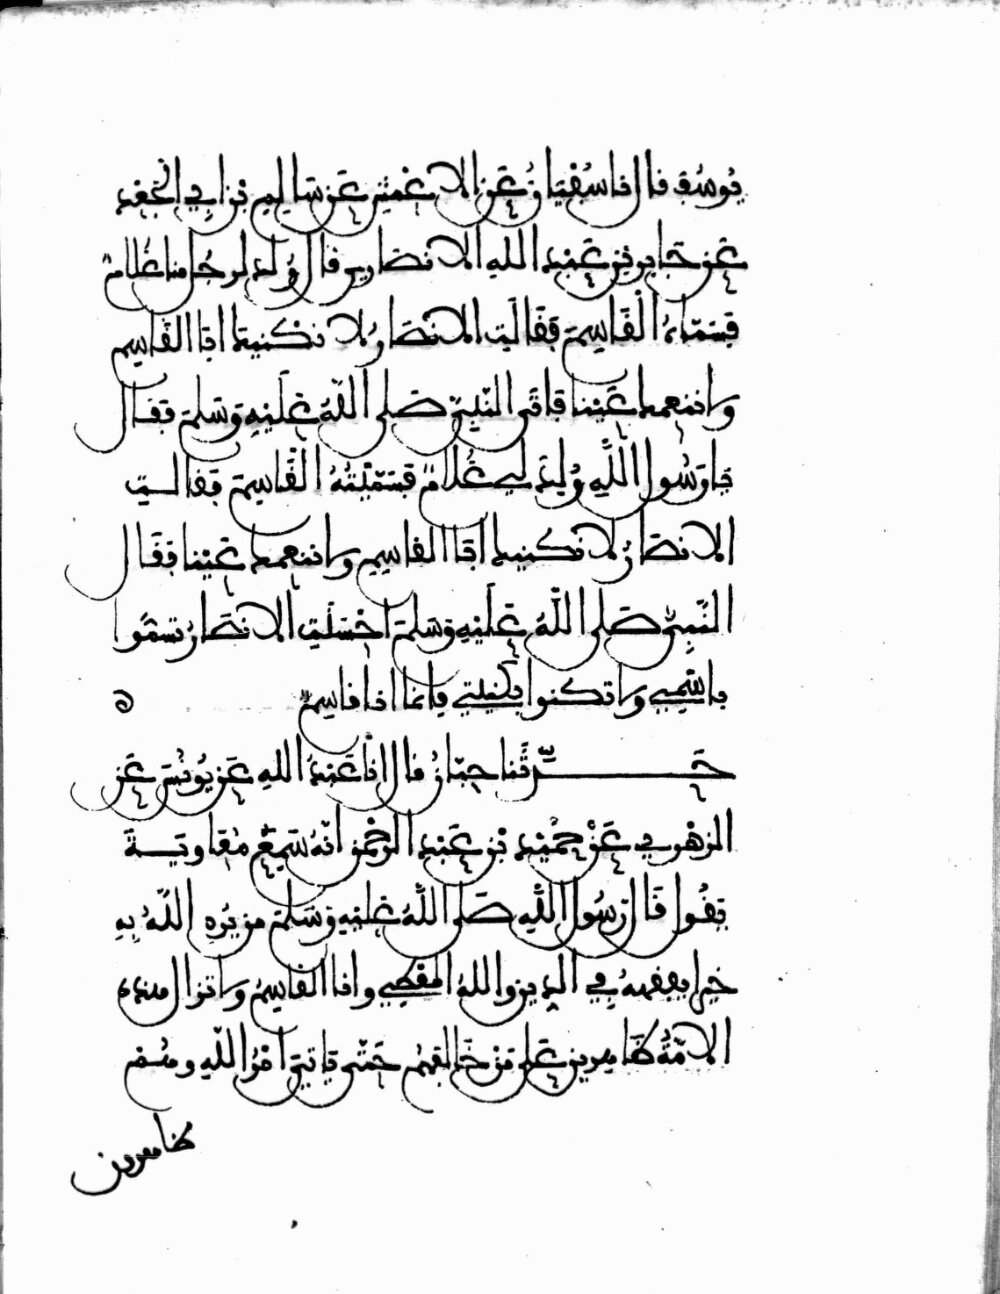 يوسف قال نا سفيان عن الاعمش عن سالم بن ابي الجعد
عن جابر بن عبد الله الانصاري قال ولد لرجل منا غلام
فسماه القاسم فقالت الانصار لا نكنيك ابا القاسم
ولا ننعمك عينا فاتى النبي صلى الله عليه وسلم فقال
يا رسول الله ولد لي غلام فسميته القاسم فقالت
الانصار لا نكنيك ابا القاسم ولا ننعمك عينا فقال
النبي صلى الله عليه وسلم احسنت الانصار تسموا
باسمي ولا تكنوا بكنيتي فانما انا قاسم ه
حدثنا حبان قال انا عبد الله عن يونس عن
الزهري عن حميد بن عبد الرحمن انه سمع معاوية
يقول قال رسول الله صلى الله عليه وسلم من يرد الله به
خيرا يفقهه في الدين والله المعطي وانا القاسم ولا تزال هذه
الامة ظاهرين على من خالفهم حتى ياتي امر الله وهم
ظاهرون